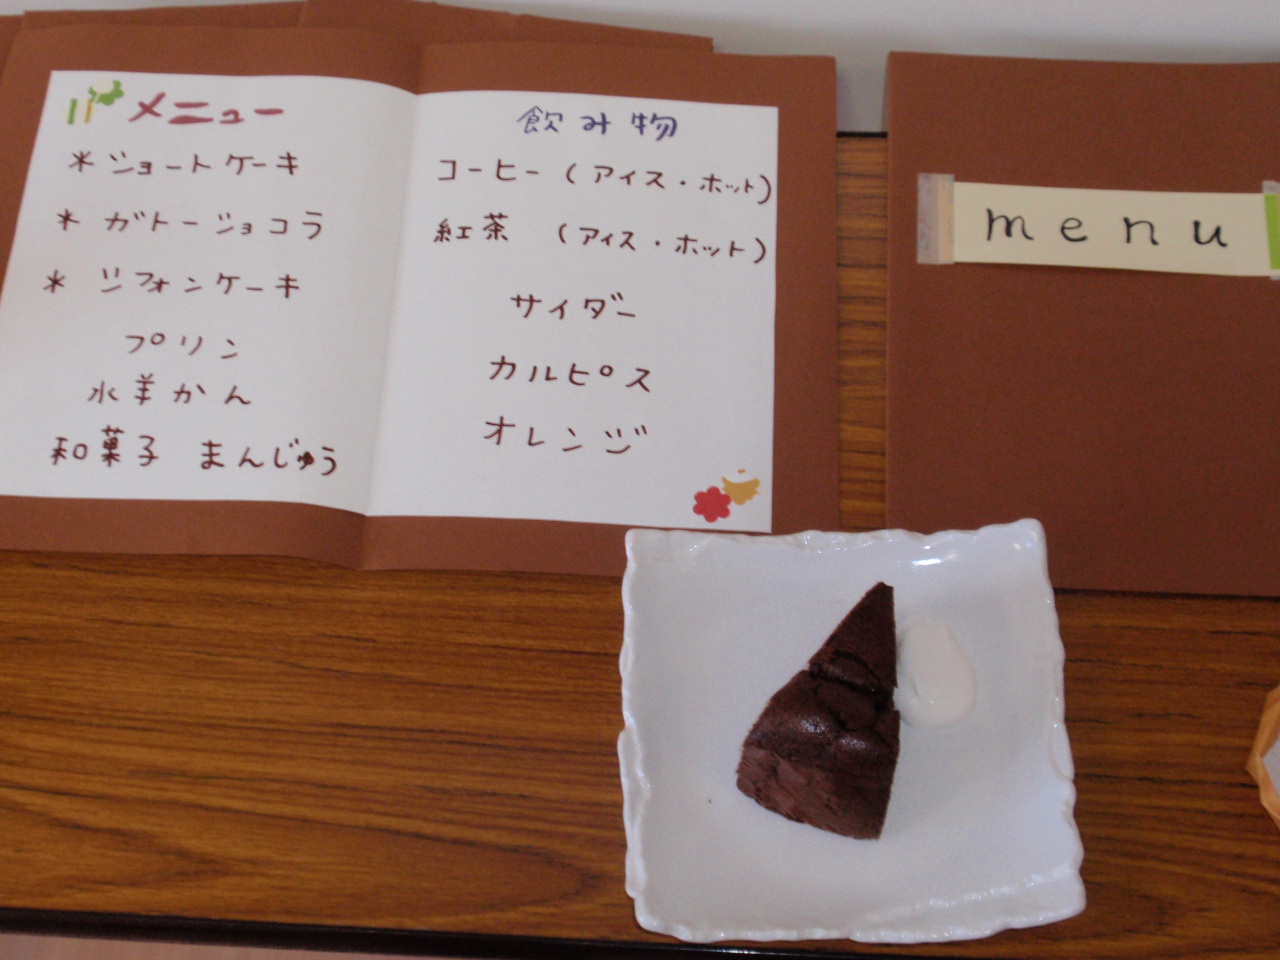 メニュー
* ショートケーキ
* ガトーショコラ
* シフォンケーキ
プリン
水羊かん
和菓子 まんじゅう
飲み物
コーヒー (アイス・ホット)
紅茶 (アイス・ホット)
サイダー
カルピス
オレンジ
menu